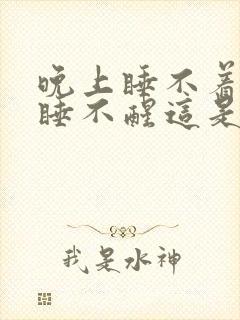 晚上睡不着
睡不醒這是
我是水神